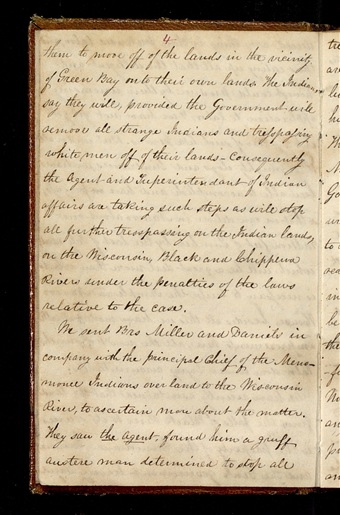 4
them to move off of the lands in the vicinity
of Green Bay on to their own lands. The Indians
say they will, provided the Government will
remove all strange Indians and tresspassing
white men off of their lands - Consequently
the Agent and Superintendant of Indian
affairs are taking such steps as will stop
all further tresspassing on the Indian lands,
on the Wisconsin, Black and Chippewa
Rivers under the penalties of the laws
relative to the case.
We sent Brs Miller and Daniels in
company with the principal Chief of the Meno-
monee Indians over land to the Wisconsin
River, to ascertain more about the matter.
They saw the Agent, found him a gruff
austere man determined to stop all